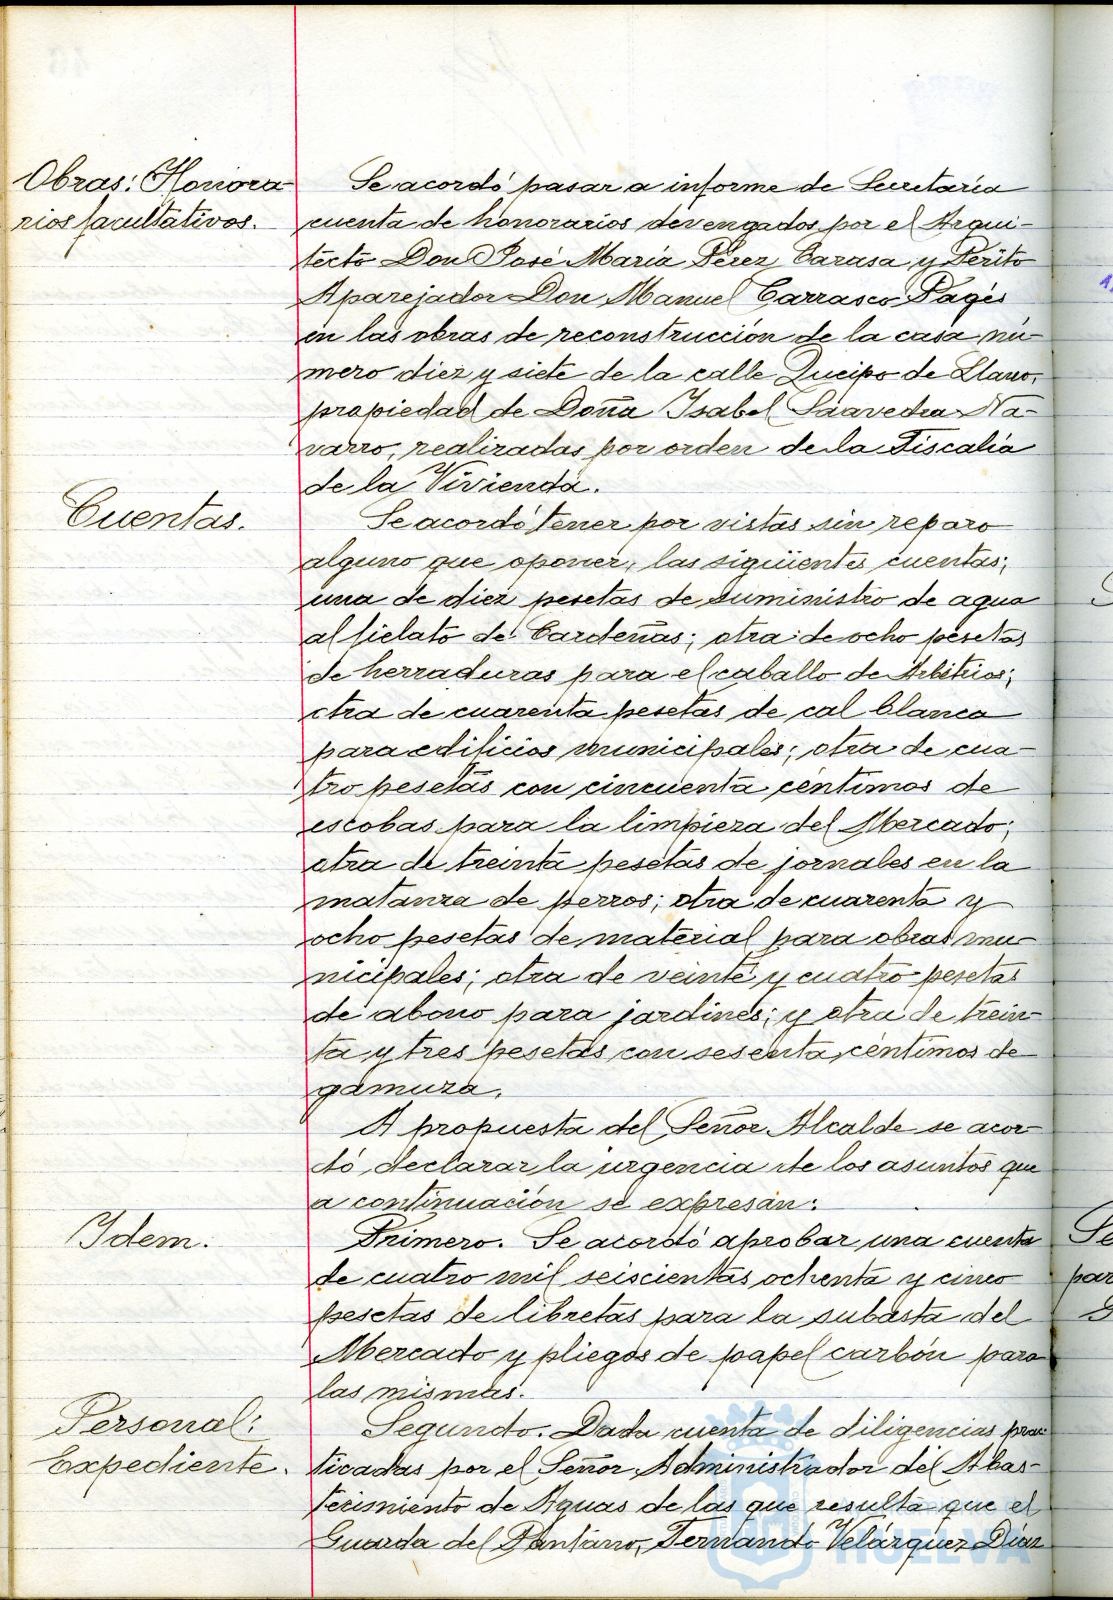 Obras: Honora-
rios facultativos.
Se acordó pasar a informe de Secretaría
cuenta de honorarios devengados por el Arqui-
tecto Don José María Pérez Carasa y Perito
Aparejador Don Manuel Carrasco Pagés
en las obras de reconstrucción de la casa nú-
mero diez y siete de la calle Queipo de Llano,
propiedad de Doña Isabel Saavedra Na-
varro, realizadas por orden de la Fiscalía
de la Vivienda.
Cuentas.
Se acordó tener por vistas sin reparo
alguno que oponer, las siguientes cuentas;
una de diez pesetas de suministro de agua
al fielato de Cardeñas; otra de ocho pesetas
de herraduras para el caballo de Arbitrios;
otra de cuarenta pesetas de cal blanca
para edificios municipales; otra de cua-
tro pesetas con cincuenta céntimos de
escobas para la limpieza del Mercado;
otra de treinta pesetas de jornales en la
matanza de perros; otra de cuarenta y
ocho pesetas de material para obras mu-
nicipales; otra de veinte y cuatro pesetas
de abono para jardines; y otra de trein-
ta y tres pesetas con sesenta céntimos de
gamuza.
A propuesta del Señor Alcalde se acor-
dó declarar la urgencia de los asuntos que
a continuación se expresan:
Idem.
Primero. Se acordó aprobar una cuenta
de cuatro mil seiscientas ochenta y cinco
pesetas de libretas para la subasta del
Mercado y pliegos de papel carbón para
las mismas.
Personal:
Expediente.
Segundo. Dada cuenta de diligencias prac-
ticadas por el Señor Administrador del Abas-
tecimiento de Aguas de las que resulta que el
Guarda del Pantano, Fernando Velázquez Díaz
HUELVA
Se
par